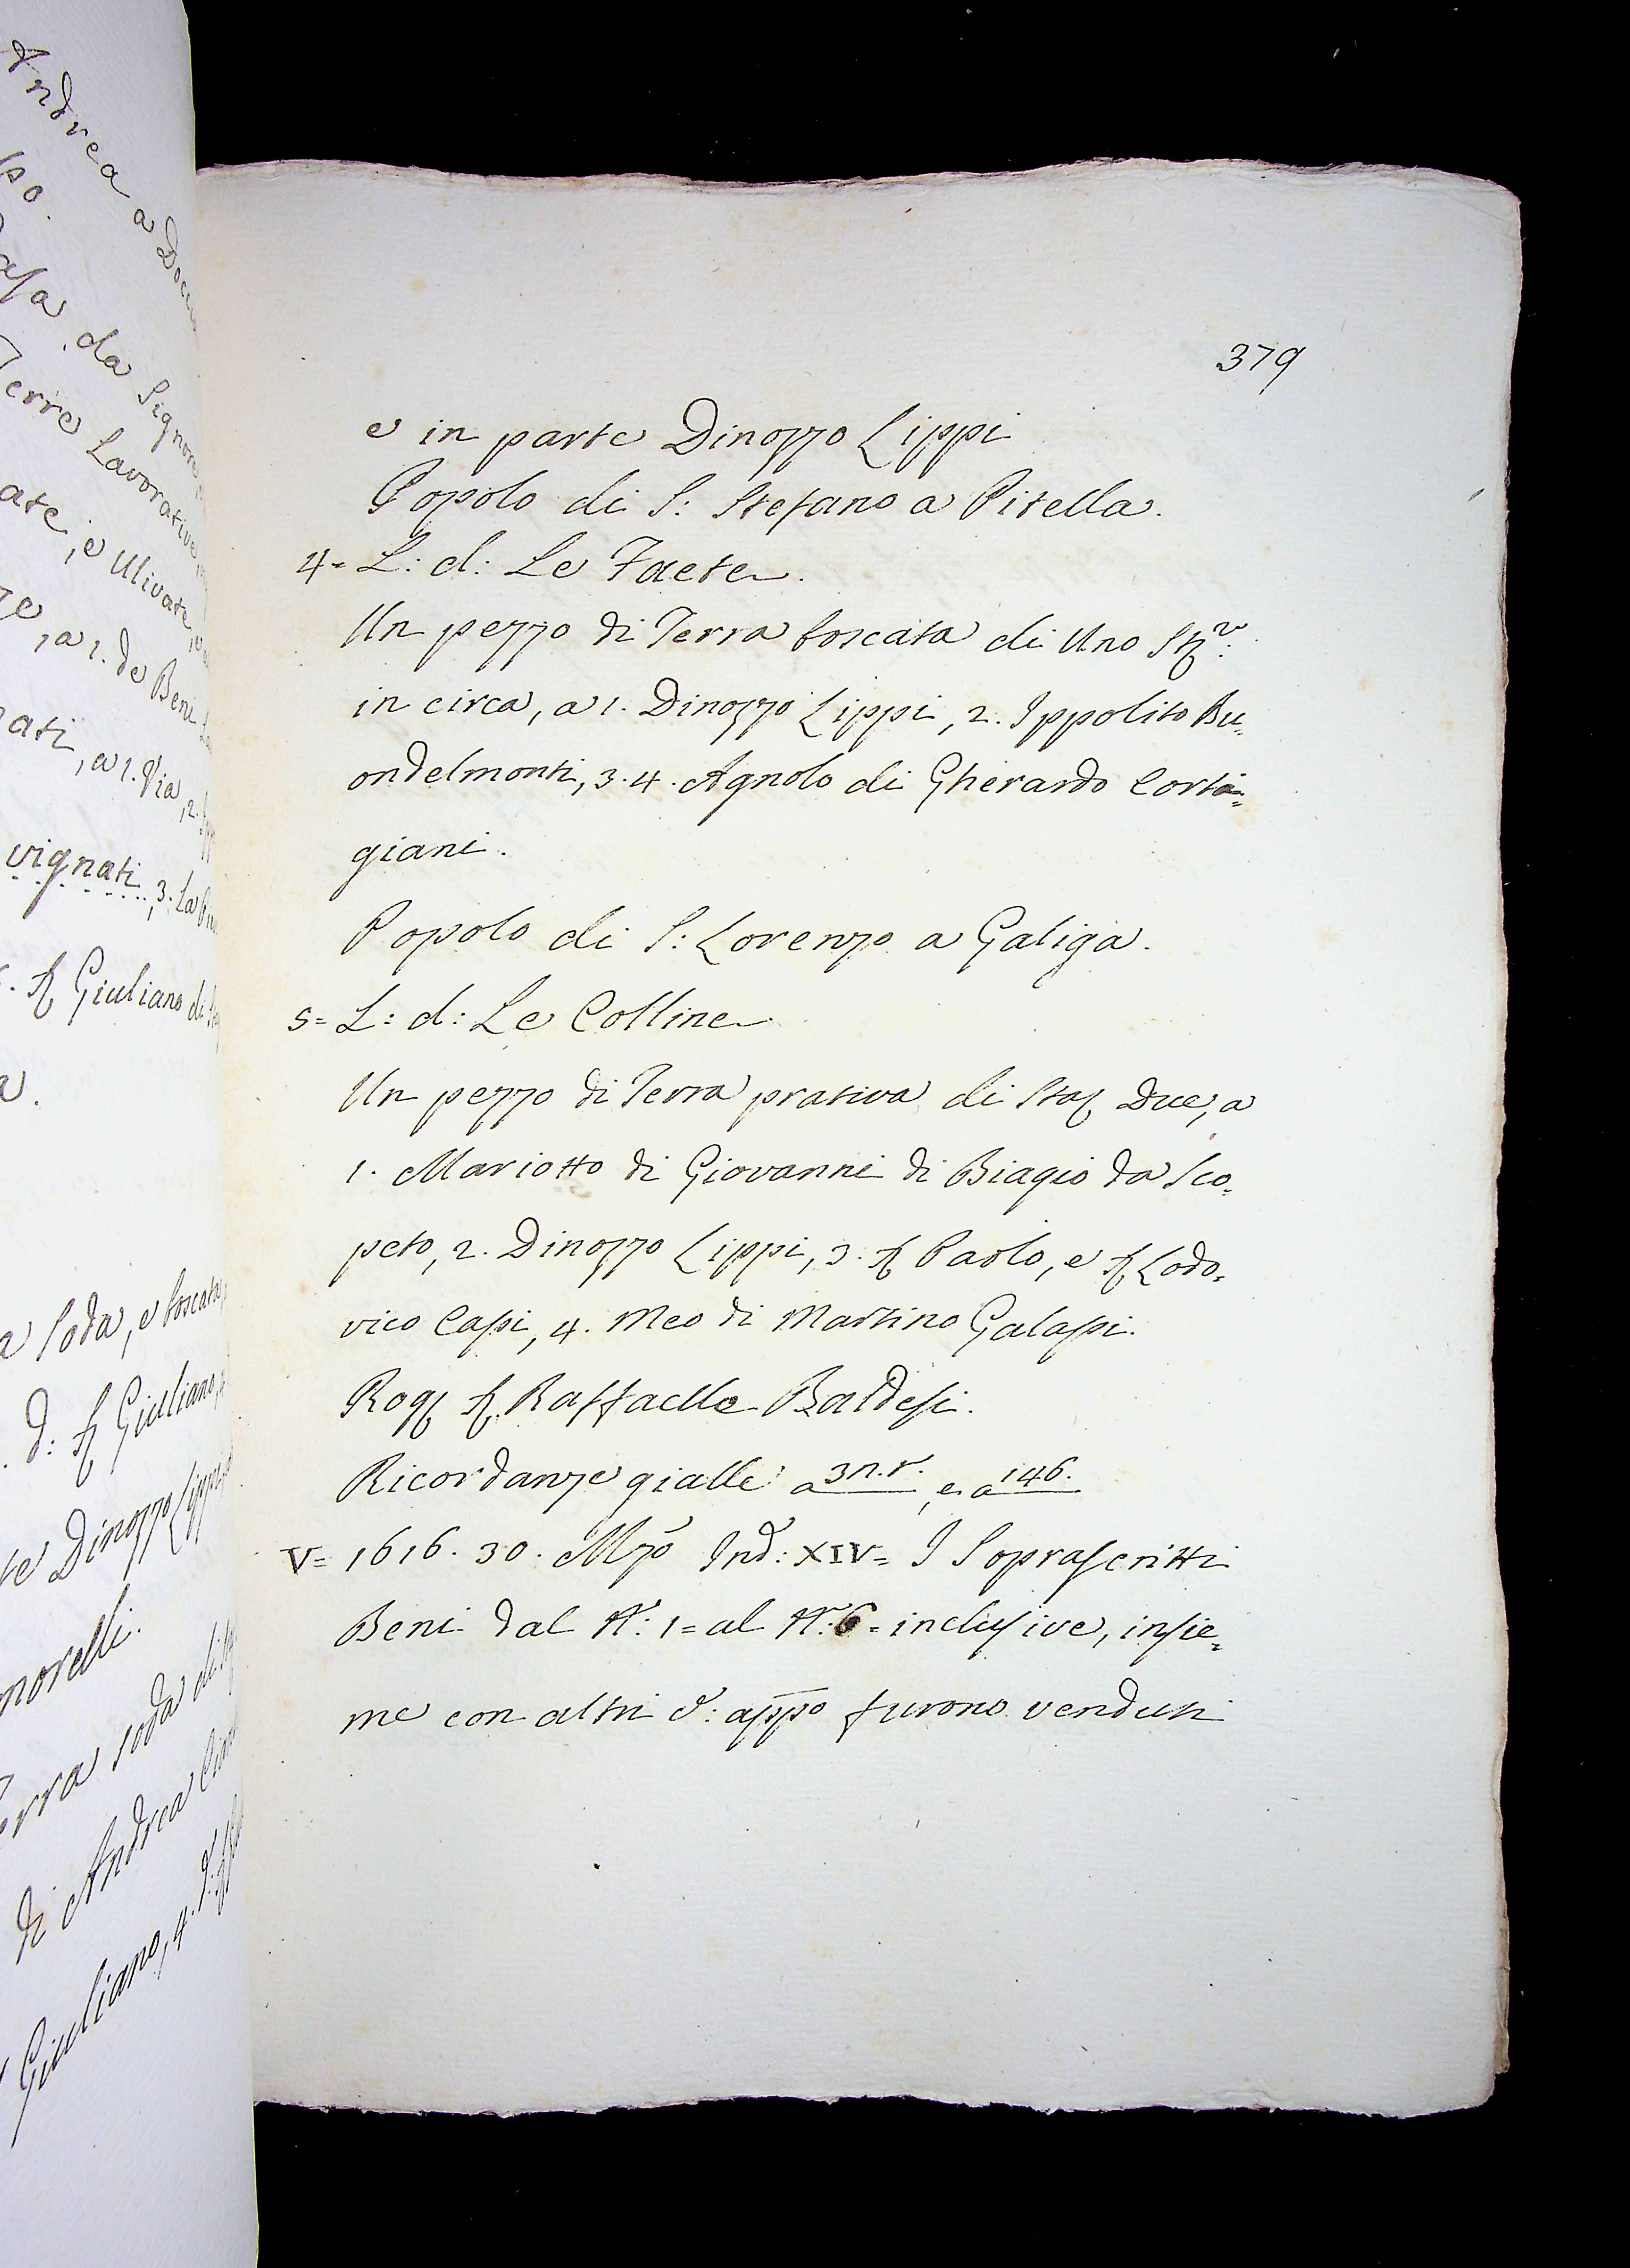 Andrea a Docc
po.
asa da Signore
Terre Lavorative
ate, e Ulivate, e
, a 1. de Beni
ati, a 1. Via, 2.
vignati, 3. La
. Sr Giuliano di
a.
a Soda, e boscata
. d: Sr Giuliano,
te Dinozzo Lippi
morelli.
erra soda di
di Andrea
Giuliano, 4.
379
e in parte Dinozzo Lippi
Popolo di S: Stefano a Pitella.
4= L: d: Le Faete.
Un pezzo di Terra boscata di Uno Str:
in circa, a 1. Dinozzo Lippi, 2. Ippolito Bu=
ondelmonti, 3. 4. Agnolo di Gherardo Corti=
giani.
Popolo di S: Lorenzo a Galiga.
5= L: d: Le Colline
Un pezzo di Terra prativa di Sta Due, a
1. Mariotto di Giovanni di Biagio da Sco=
peto, 2. Dinozzo Lippi, 3. Sr Paolo, e Sr Lodo=
vico Casi, 4. Meo di Martino Galassi.
Rog Sr Raffaello Baldesi.
Ricordanze gialle a 32.r., e a 146.
V= 1616. 30. Mzo Ind: XIV= I Soprascritti
Beni dal N: 1= al N: 6= inclusive, insie=
me con altri d: appo furono venduti